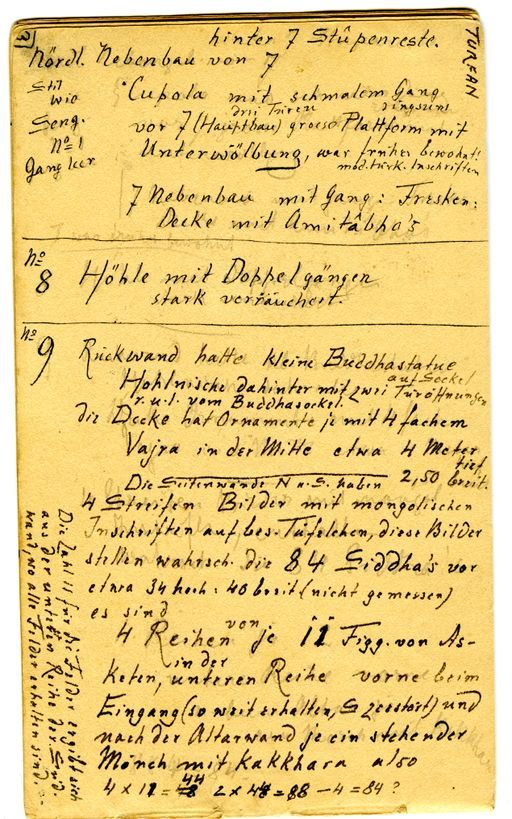 3
TURFAN
hinter 7 Stûpenreste.
Nördl. Nebenbau von 7
Stil
wie
Seng.
No 1
Gang leer
Cupola mit schmalem Gang
drei Türen ringsum
vor 7 (Hauptbau) grosse Plattform mit
Unterwölbung, war früher bewohnt!
mod. türk. Inschriften
7 Nebenbau mit Gang: Fresken:
Decke mit Amitâbha's
No
8
Höhle mit Doppelgängen
stark verräuchert.
No
9
Rückwand hatte kleine Buddhastatue
auf Sockel
Hohlnische dahinter mit zwei Türöffnungen
r. u. l. vom Buddhasockel.
die Decke hat Ornamente je mit 4 fachem
Vajra in der Mitte etwa 4 Meter
tief
2,50 breit.
Die Seitenwände N u. S. haben
4 Streifen Bilder mit mongolischen
Inschriften auf bes. Täfelchen, diese Bilder
stellen wahrsch. die 84 Siddha's vor
etwa 34 hoch : 40 breit (nicht gemessen)
es sind
4 Reihen von je 11 Figg. von As-
in der
keten, unteren Reihe vorne beim
Eingang (so weit erhalten, S zerstört) und
nach der Altarwand je ein stehender
Mönch mit Kakkhara also
44
4 x 11 = 2 x 44 = 88 – 4 = 84 ?
Die Zahl 11 für die Felder ergibt sich
aus der untersten Reihe der Süd-
wand, wo alle Felder erhalten sind.